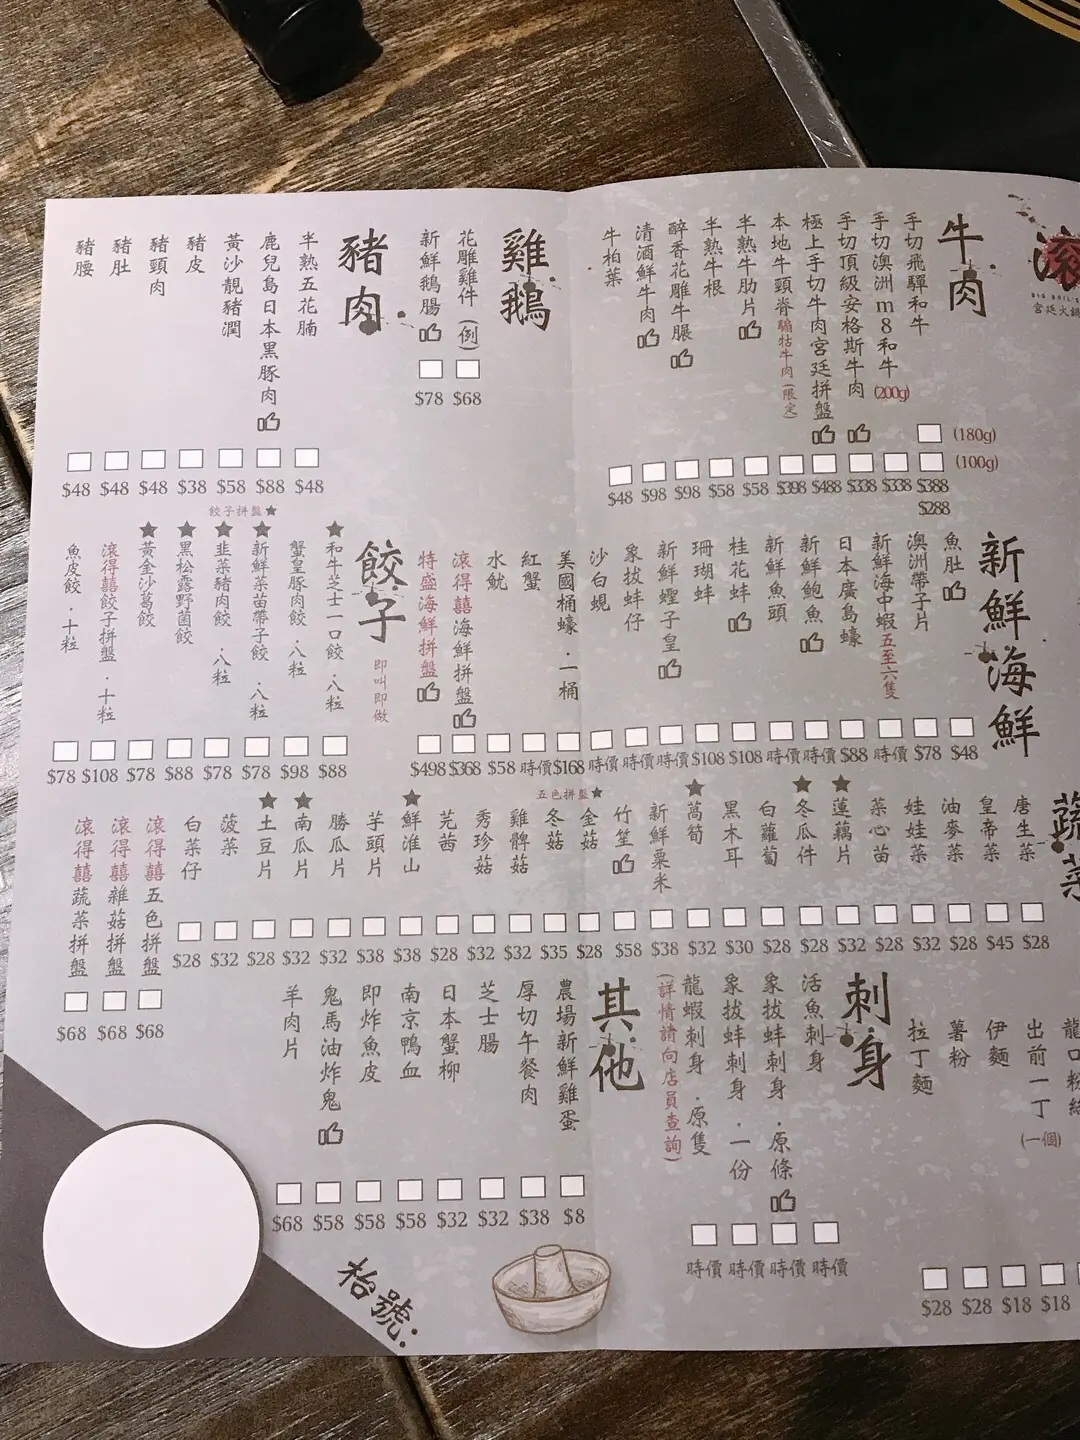 滾
BIG BOIL
宮廷火鍋
牛肉
手切飛驒和牛
(180g)
(100g)
$388
$288
手切澳洲m8和牛(200g)
$338
手切頂級安格斯牛肉
$338
極上手切牛肉宮廷拼盤
$488
本地牛頸脊騸牯牛肉(限定)
$398
半熟牛肋片
$58
半熟牛根
$58
醉香花雕牛𦟌
$98
清酒鮮牛肉
$98
牛柏葉
$48
雞鵝
花雕雞件(例)
$68
新鮮鵝腸
$78
豬肉
半熟五花腩
$48
鹿兒島日本黑豚肉
$88
黃沙靚豬潤
$58
豬皮
$38
豬頸肉
$48
豬肚
$48
豬腰
$48
新鮮海鮮
魚肚
$48
澳洲帶子片
$78
新鮮海中蝦五至六隻
時價
日本廣島蠔
$88
新鮮鮑魚
時價
新鮮魚頭
時價
桂花蚌
$108
珊瑚蚌
$108
新鮮蟶子皇
時價
象拔蚌仔
時價
沙白蜆
時價
美國桶蠔．一桶
$168
紅蟹
時價
水魷
$58
滾得囍海鮮拼盤
$368
特盛海鮮拼盤
$498
餃子
即叫即做
餃子拼盤★
★和牛芝士一口餃．八粒
$88
蟹皇豚肉餃．八粒
$98
★新鮮菜苗帶子餃．八粒
$78
★韭菜豬肉餃．八粒
$78
★黑松露野菌餃
$88
★黃金沙葛餃
$78
滾得囍餃子拼盤．十粒
$108
魚皮餃．十粒
$78
蔬菜
五色拼盤★
唐生菜
$28
皇帝菜
$45
油麥菜
$28
娃娃菜
$32
菜心苗
$28
★蓮藕片
$32
★冬瓜件
$28
白蘿蔔
$28
黑木耳
$30
★萵筍
$32
新鮮粟米
$38
竹笙
$58
金菇
$28
冬菇
$35
雞髀菇
$32
秀珍菇
$32
芫茜
$28
★鮮淮山
$38
芋頭片
$38
勝瓜片
$32
★南瓜片
$32
★土豆片
$28
菠菜
$32
白菜仔
$28
滾得囍五色拼盤
$68
滾得囍雜菇拼盤
$68
滾得囍蔬菜拼盤
$68
龍口粉絲
$18
出前一丁(一個)
$18
伊麵
$18
薯粉
$28
拉丁麵
$28
刺身
活魚刺身
時價
象拔蚌刺身．原條
時價
象拔蚌刺身．一份
時價
龍蝦刺身．原隻
時價
(詳情請向店員查詢)
其他
農場新鮮雞蛋
$8
厚切午餐肉
$38
芝士腸
$32
日本蟹柳
$32
南京鴨血
$58
即炸魚皮
$58
鬼馬油炸鬼
$58
羊肉片
$68
枱號：